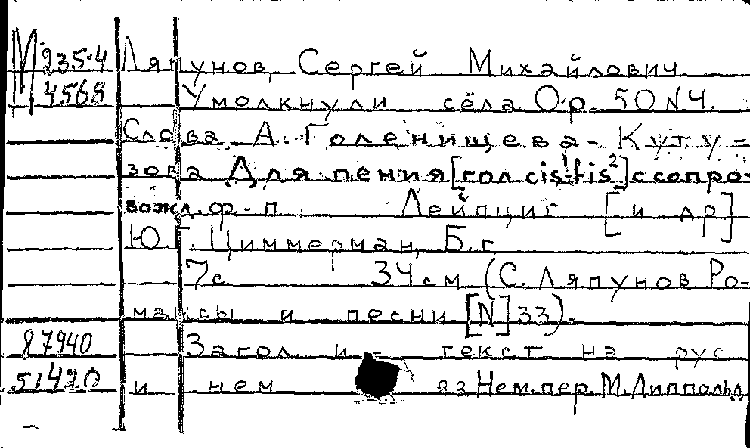 М 235-4 Ляпунов, Сергей Михайлович
4568 Умолкнули сёла Ор. 50 N 4.
Слова А. Голенищева-Куту-
зова Для пения [гол cis¹-fis²] с сопро-
вожд. ф-п Лейпциг [и др]
Ю Г. Циммерман, Б. г
7с 34 см (С. Ляпунов Ро-
мансы и песни [N] 33).
87940 Загол и текст на рус
51420 и нем яз Нем. пер. М. Липпольд